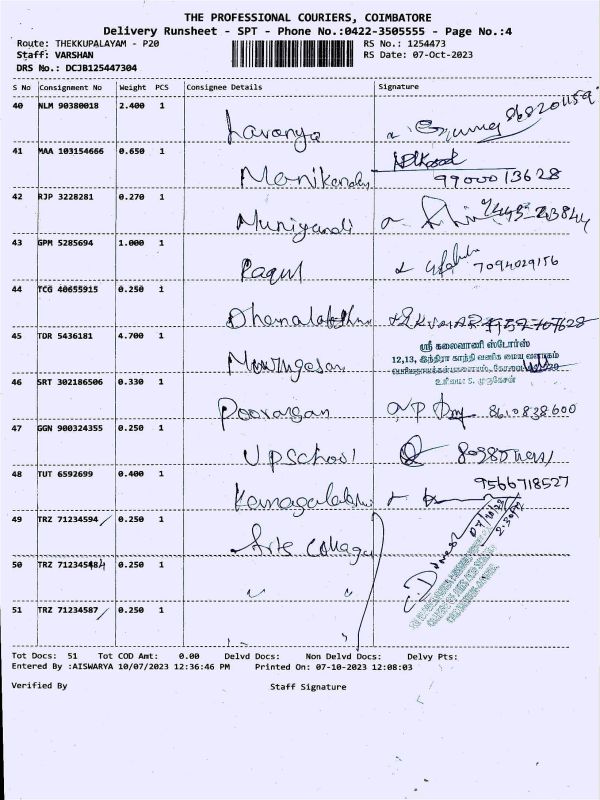 THE PROFESSIONAL COURIERS, COIMBATORE
Delivery Runsheet - SPT - Phone No.:0422-3505555 - Page No.:4
Route: THEKKUPALAYAM - P20 RS No.: 1254473
Staff: VARSHAN RS Date: 07-Oct-2023
DRS No.: DCJB125447304
S No Consignment No Weight PCS Consignee Details Signature
40 NLM 90380018 2.400 1
Lavanya
41 MAA 103154666 0.650 1
Manikandan 9900013628
42 RJP 3228281 0.270 1
Muniyandi
43 GPM 5285694 1.000 1
Ragul 7094029156
44 TCG 40655915 0.250 1
Dhanalakshmi
45 TDR 5436181 4.700 1
ஸ்ரீ கலைவாணி ஸ்டோர்ஸ்
12,13, இந்திரா காந்தி வணிக மைய வளாகம்
Murugesan
உரிமை: S. முருகேசன்
46 SRT 302186506 0.330 1
Poovarasan 8610838600
47 GGN 900324355 0.250 1
UPSchool
48 TUT 6592699 0.400 1
9566718527
Kanagalakshmi
49 TRZ 71234594 0.250 1
Arts College
07/10/23
2:30PM
50 TRZ 71234584 0.250 1
" "
C. Dinesh
51 TRZ 71234587 0.250 1
Tot Docs: 51 Tot COD Amt: 0.00 Delvd Docs: Non Delvd Docs: Delvy Pts:
Entered By :AISWARYA 10/07/2023 12:36:46 PM Printed On: 07-10-2023 12:08:03
Verified By Staff Signature